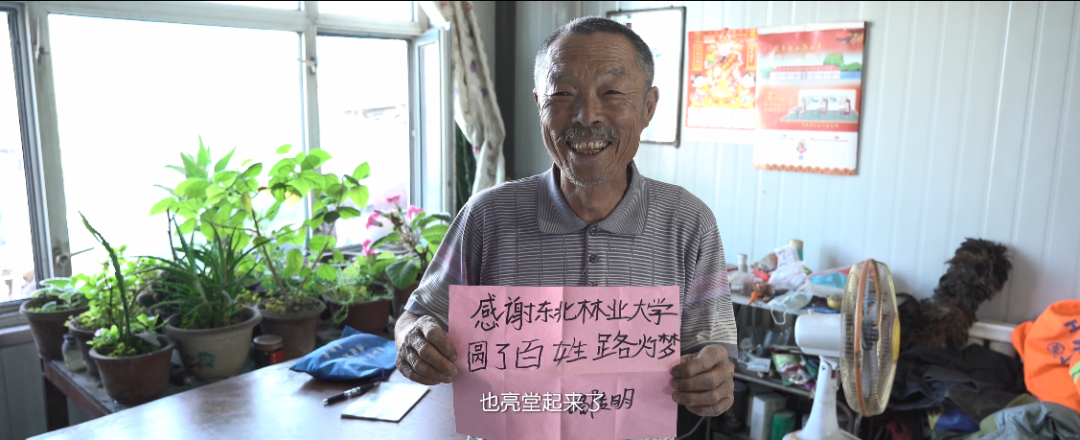 感谢东北林业大学
圆了百姓路灼梦
也亮堂起来了